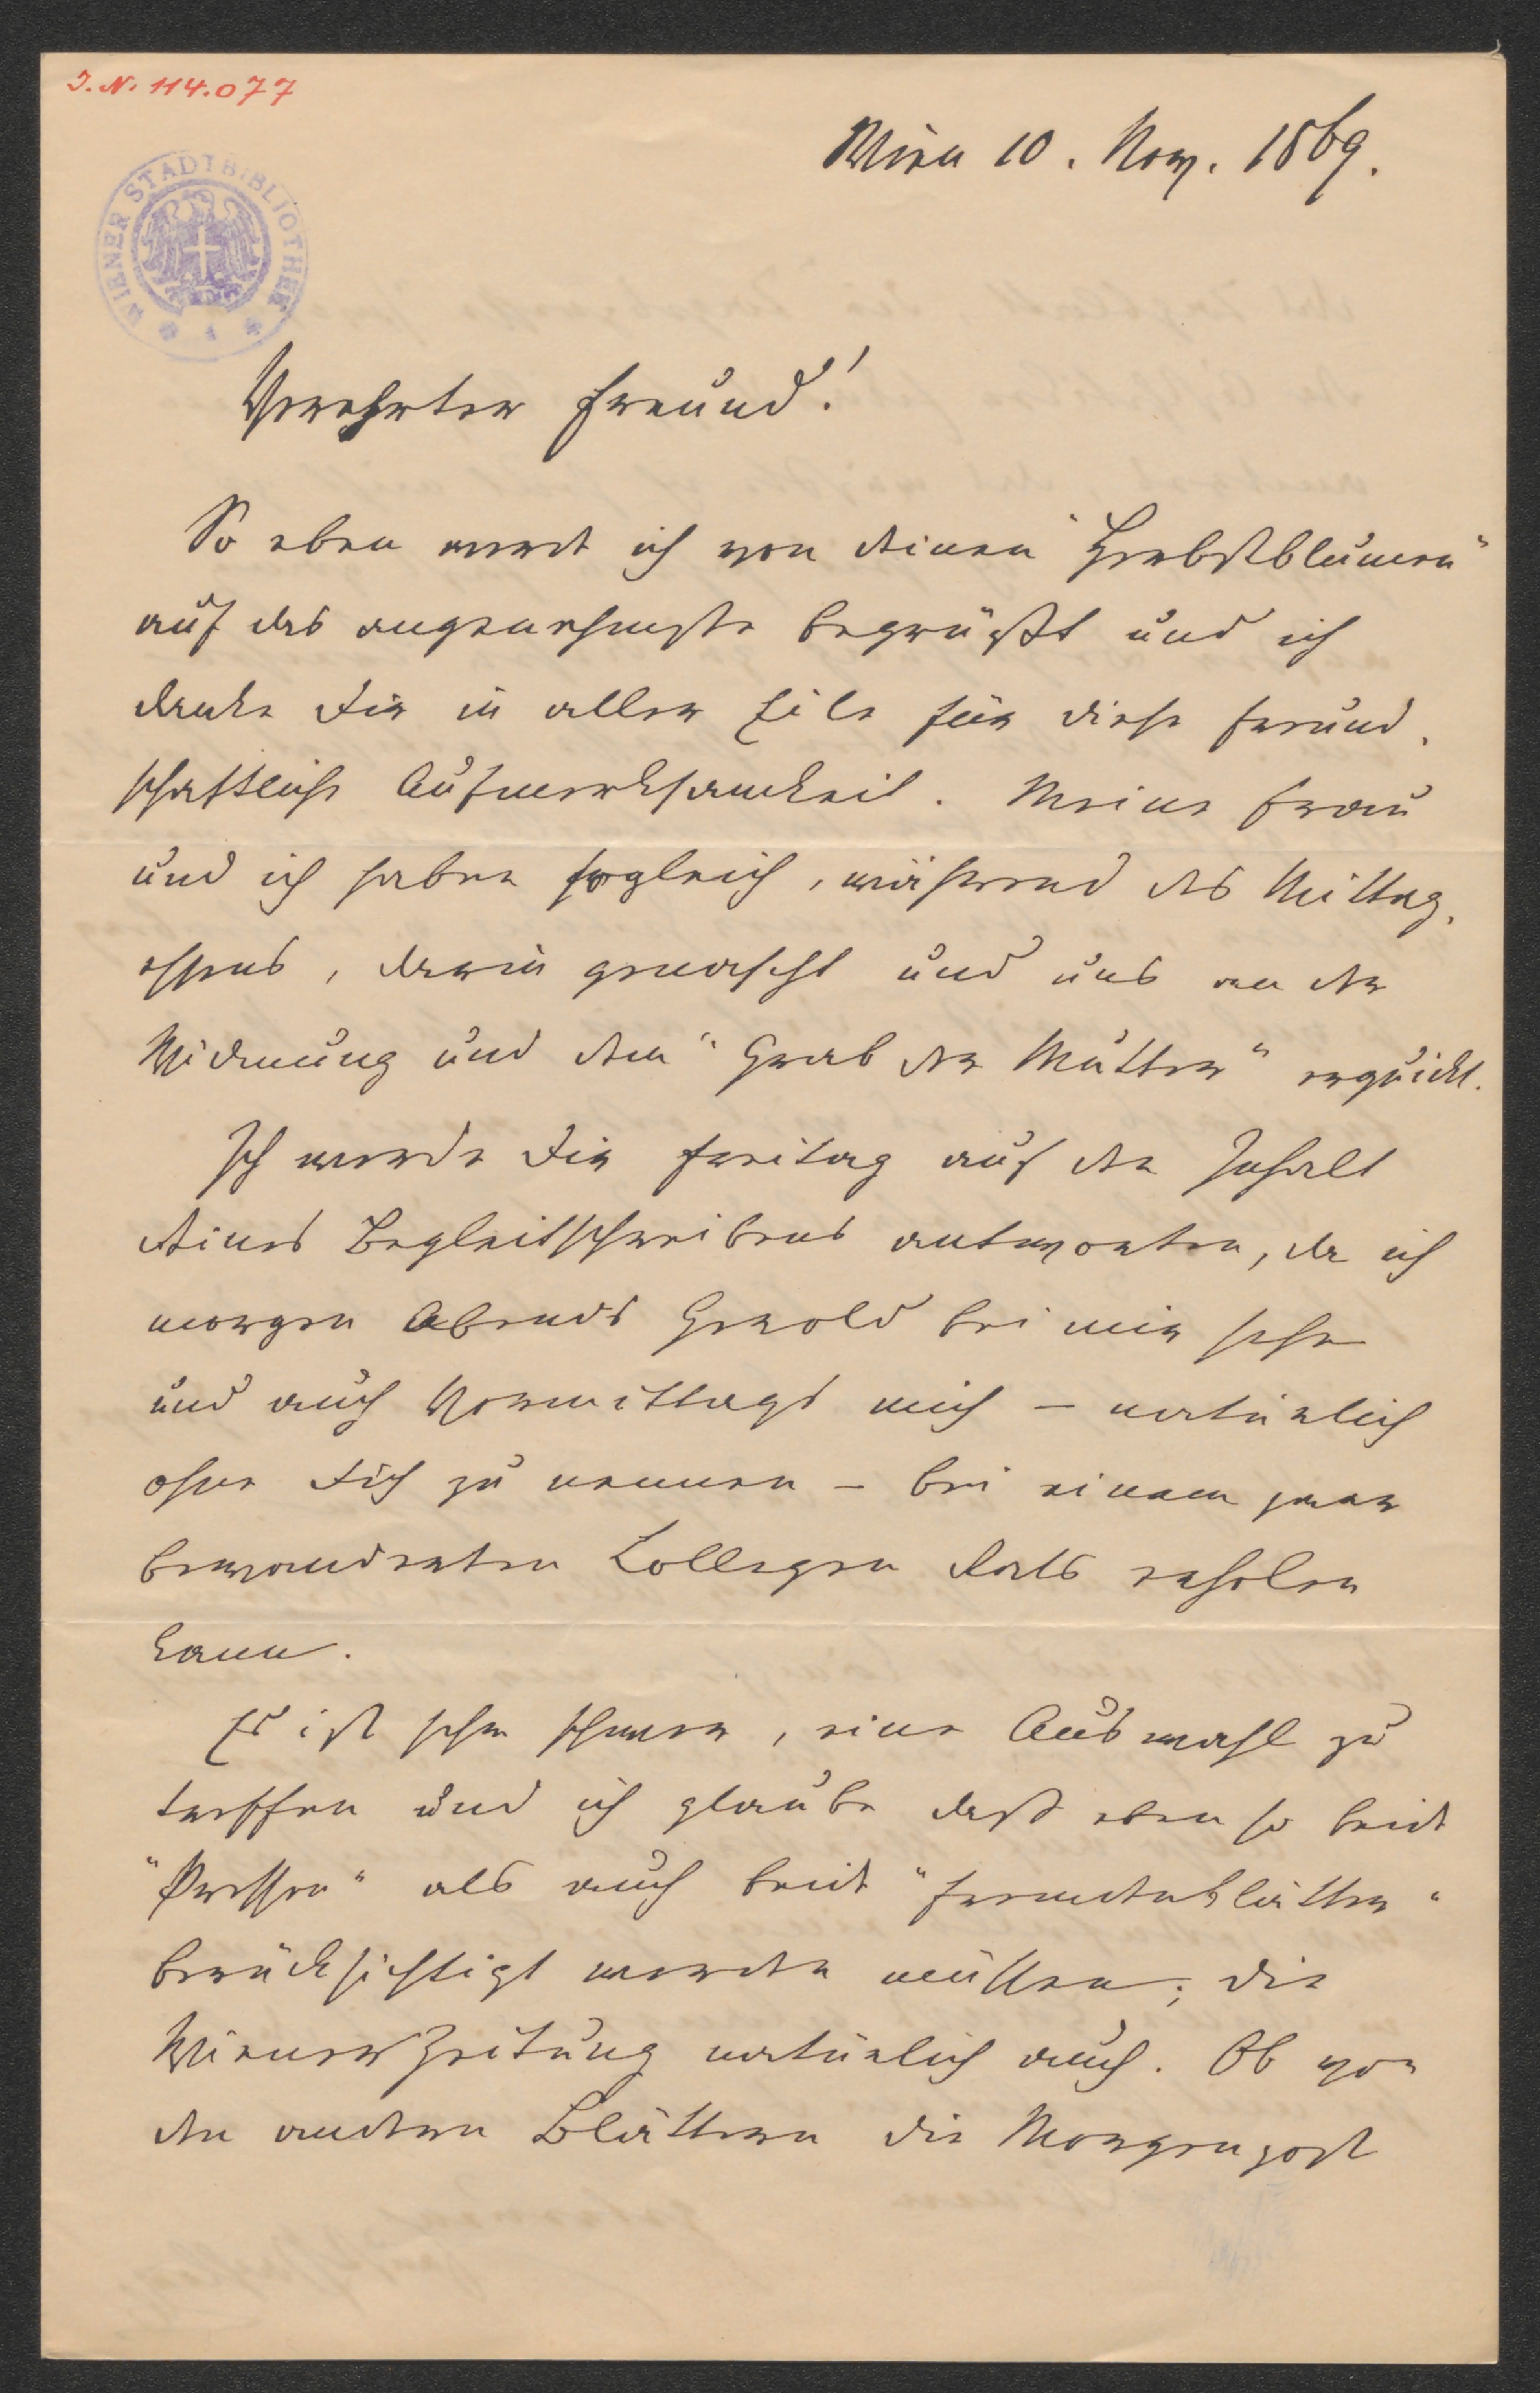 I. N. 114.077
WIENER STADTBIBLIOTHEK
Wien 10. Nov. 1869.
Verehrter Freund!
So eben werd ich von deinen "Herbstblumen"
auf das angenehmste begrüßt und ich
danke Dir in aller Eile für diese freund-
schaftliche Aufmerksamkeit. Meine Frau
und ich haben sogleich, während des Mittag-
essens, darin genascht und uns an der
Widmung und dem "Grab der Mutter" erquickt.
Ich werde Dir Freitag auf den Inhalt
deines Begleitschreibens antworten, da ich
morgen Abends Gerold bei mir sehe
und auch Vormittags mich – natürlich
ohne Dich zu nennen – bei einem
bewanderten Collegen Raths erholen
kann.
Es ist sehr schwer, eine Auswahl zu
treffen und ich glaube daß eben so beide
"Pressen" als auch beide "Fremdenblätter"
berücksichtigt werden müssen; die
Wiener Zeitung natürlich auch. Ob von
den andern Blättern die Morgenpost